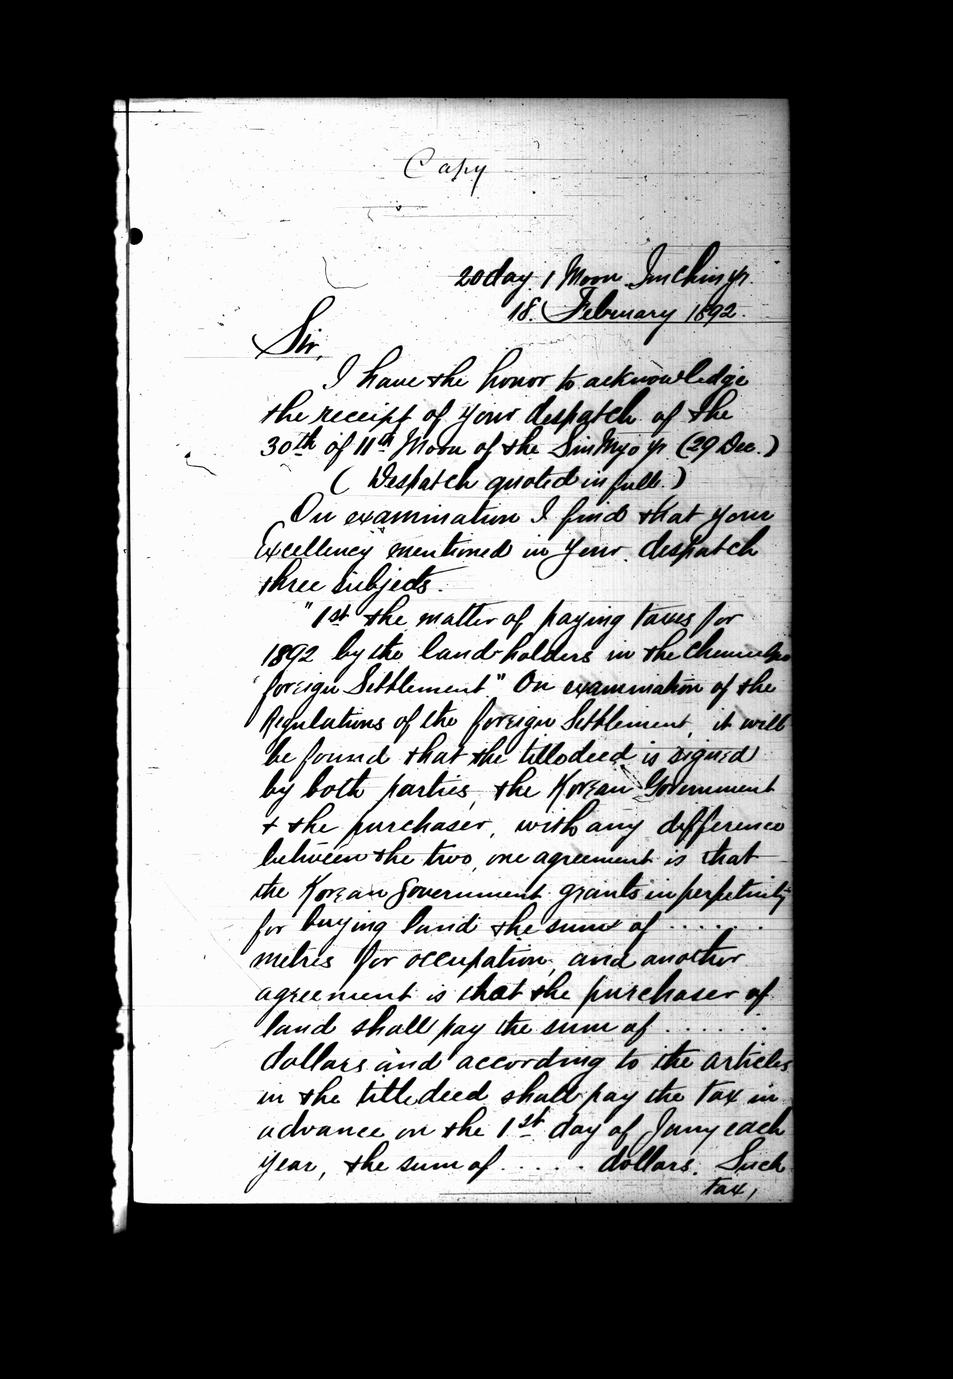 Copy
20 day 1 Moon Imchin yr.
18. February 1892.
Sir,
I have the honor to acknowledge
the receipt of your despatch of the
30th of 11th Moon of the Sin Myo yr (29 Dec.)
( Despatch quoted in full. )
On examination I find that your
Excellency mentioned in your despatch
three subjects.
"1st the matter of paying taxes for
1892 by the land-holders in the Chemulpo
foreign Settlement." On examination of the
Regulations of the foreign Settlement, it will
be found that the title deed is signed
by both parties, the Korean Government
& the purchaser, with any difference
between the two, one agreement is that
the Korean Government grants in perpetuity
for buying land the sum of . . . . . .
metres for occupation, and another
agreement is that the purchaser of
land shall pay the sum of . . . . . .
dollars and according to the articles
in the title deed shall pay the tax in
advance on the 1st day of Jany each
year, the sum of . . . . . dollars. Such
tax,